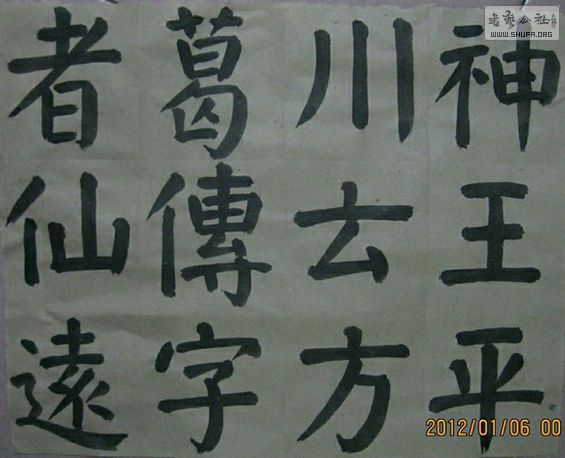 者葛川神
仙傳云王
遠字方平
书艺公社
WWW.SHUFA.ORG
2012/01/06 00